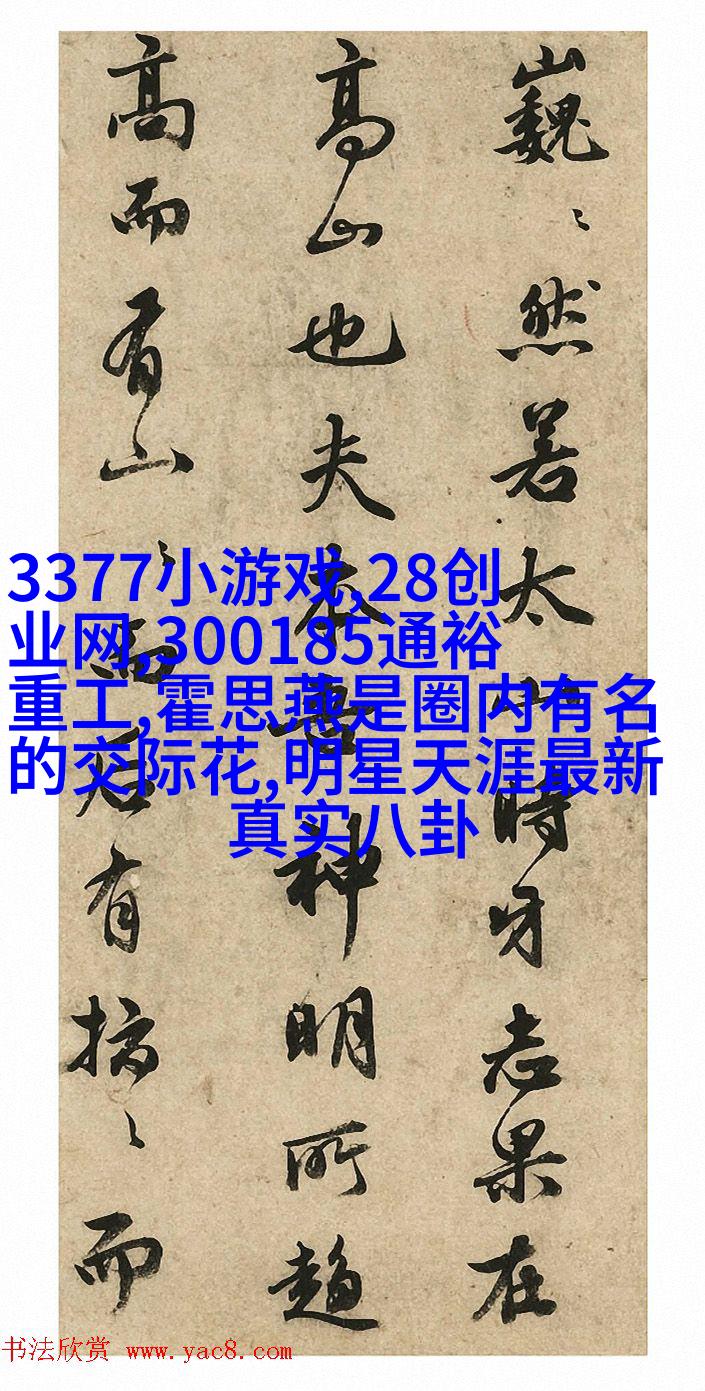 巍〻然若太山時牙志果在
高山也夫本善神明所趨
高而有山〻而后有〻而
3377小游戏,28创
业网,300185通裕
重工,霍思燕是圈内有名
的交际花,明星天涯最新
真实八卦
书法欣赏 www.yac8.com